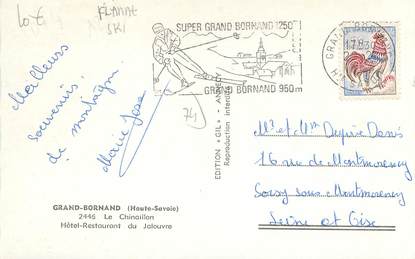 10€
FLAMME
SKI
SUPER GRAND BORNAND 1250m
GRAND BORNAND 950m
17H30
74
Meilleurs
souvenirs
de montagne
Marie José
EDITION "GIL" - ANNECY
Reproduction interdite
Mr et Mme Denis
16 rue de Montmorency
Soisy sous Montmorency
Seine et Oise
GRAND-BORNAND (Haute-Savoie)
2446 Le Chinaillon
Hôtel-Restaurant du Jalouvre